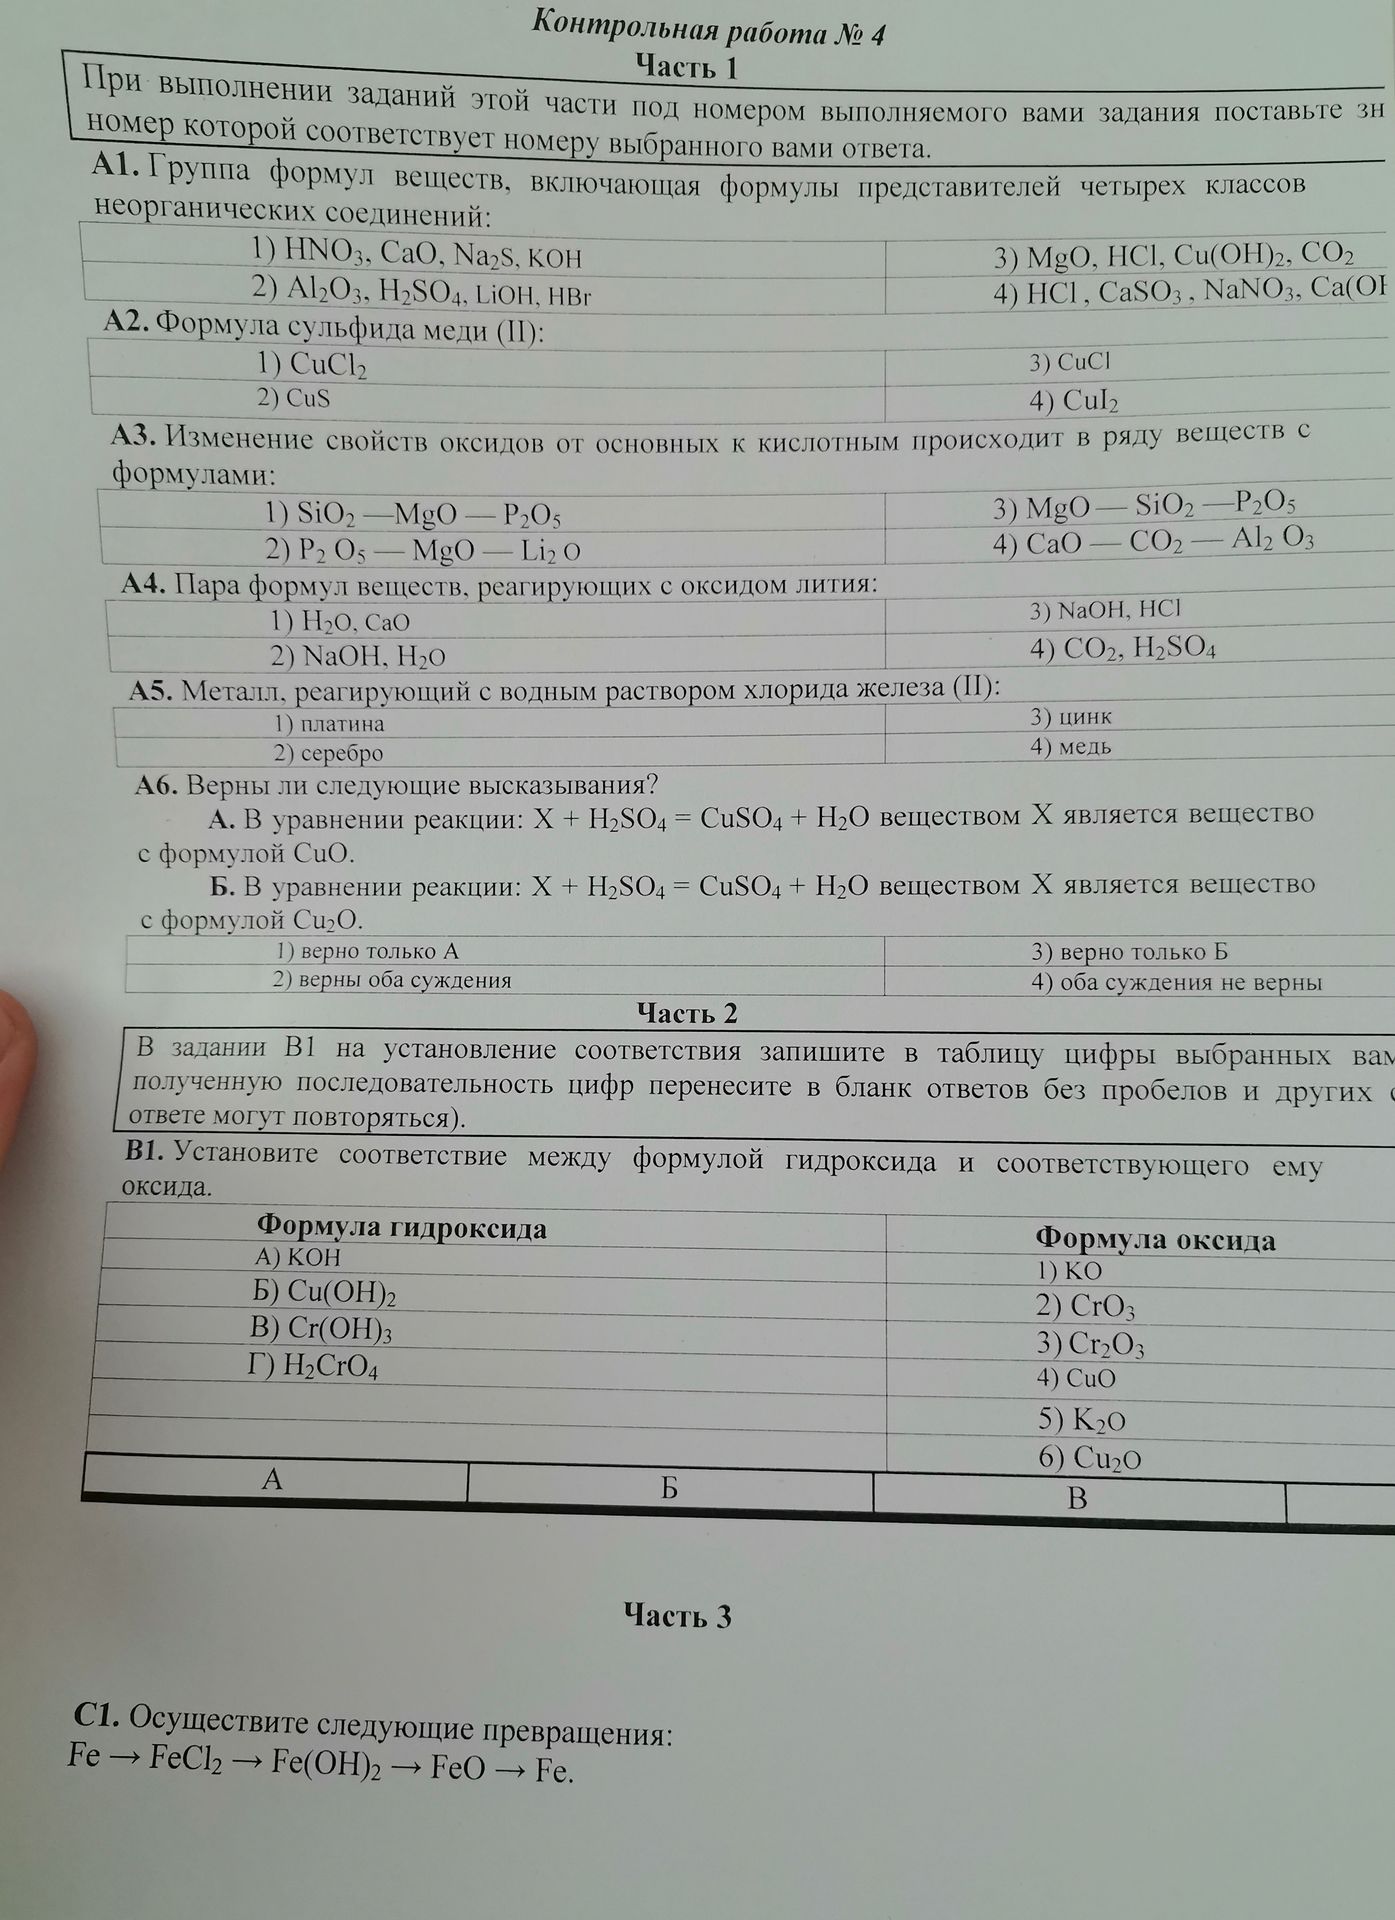 Контрольная работа № 4
Часть 1
При выполнении заданий этой части под номером выполняемого вами задания поставьте зн
номер которой соответствует номеру выбранного вами ответа.
А1. Группа формул веществ, включающая формулы представителей четырех классов
неорганических соединений:
1) HNO₃, CaO, Na₂S, KOH
3) MgO, HCl, Cu(OH)₂, CO₂
2) Al₂O₃, H₂SO₄, LiOH, HBr
4) HCl , CaSO₃ , NaNO₃, Ca(OH
А2. Формула сульфида меди (II):
1) CuCl₂
3) CuCl
2) CuS
4) CuI₂
А3. Изменение свойств оксидов от основных к кислотным происходит в ряду веществ с
формулами:
1) SiO₂ —MgO — P₂O₅
3) MgO — SiO₂ —P₂O₅
2) P₂ O₅ — MgO — Li₂ O
4) CaO — CO₂ — Al₂ O₃
А4. Пара формул веществ, реагирующих с оксидом лития:
1) H₂O, CaO
3) NaOH, HCl
2) NaOH, H₂O
4) CO₂, H₂SO₄
А5. Металл, реагирующий с водным раствором хлорида железа (II):
1) платина
3) цинк
2) серебро
4) медь
А6. Верны ли следующие высказывания?
А. В уравнении реакции: X + H₂SO₄ = CuSO₄ + H₂O веществом X является вещество
с формулой CuO.
Б. В уравнении реакции: X + H₂SO₄ = CuSO₄ + H₂O веществом X является вещество
с формулой Cu₂O.
1) верно только А
3) верно только Б
2) верны оба суждения
4) оба суждения не верны
Часть 2
В задании В1 на установление соответствия запишите в таблицу цифры выбранных вам
полученную последовательность цифр перенесите в бланк ответов без пробелов и других с
ответе могут повторяться).
В1. Установите соответствие между формулой гидроксида и соответствующего ему
оксида.
Формула гидроксида
Формула оксида
А) KOH
1) KO
Б) Cu(OH)₂
2) CrO₃
В) Cr(OH)₃
3) Cr₂O₃
Г) H₂CrO₄
4) CuO
5) K₂O
6) Cu₂O
А Б В
Часть 3
С1. Осуществите следующие превращения:
Fe → FeCl₂ → Fe(OH)₂ → FeO → Fe.